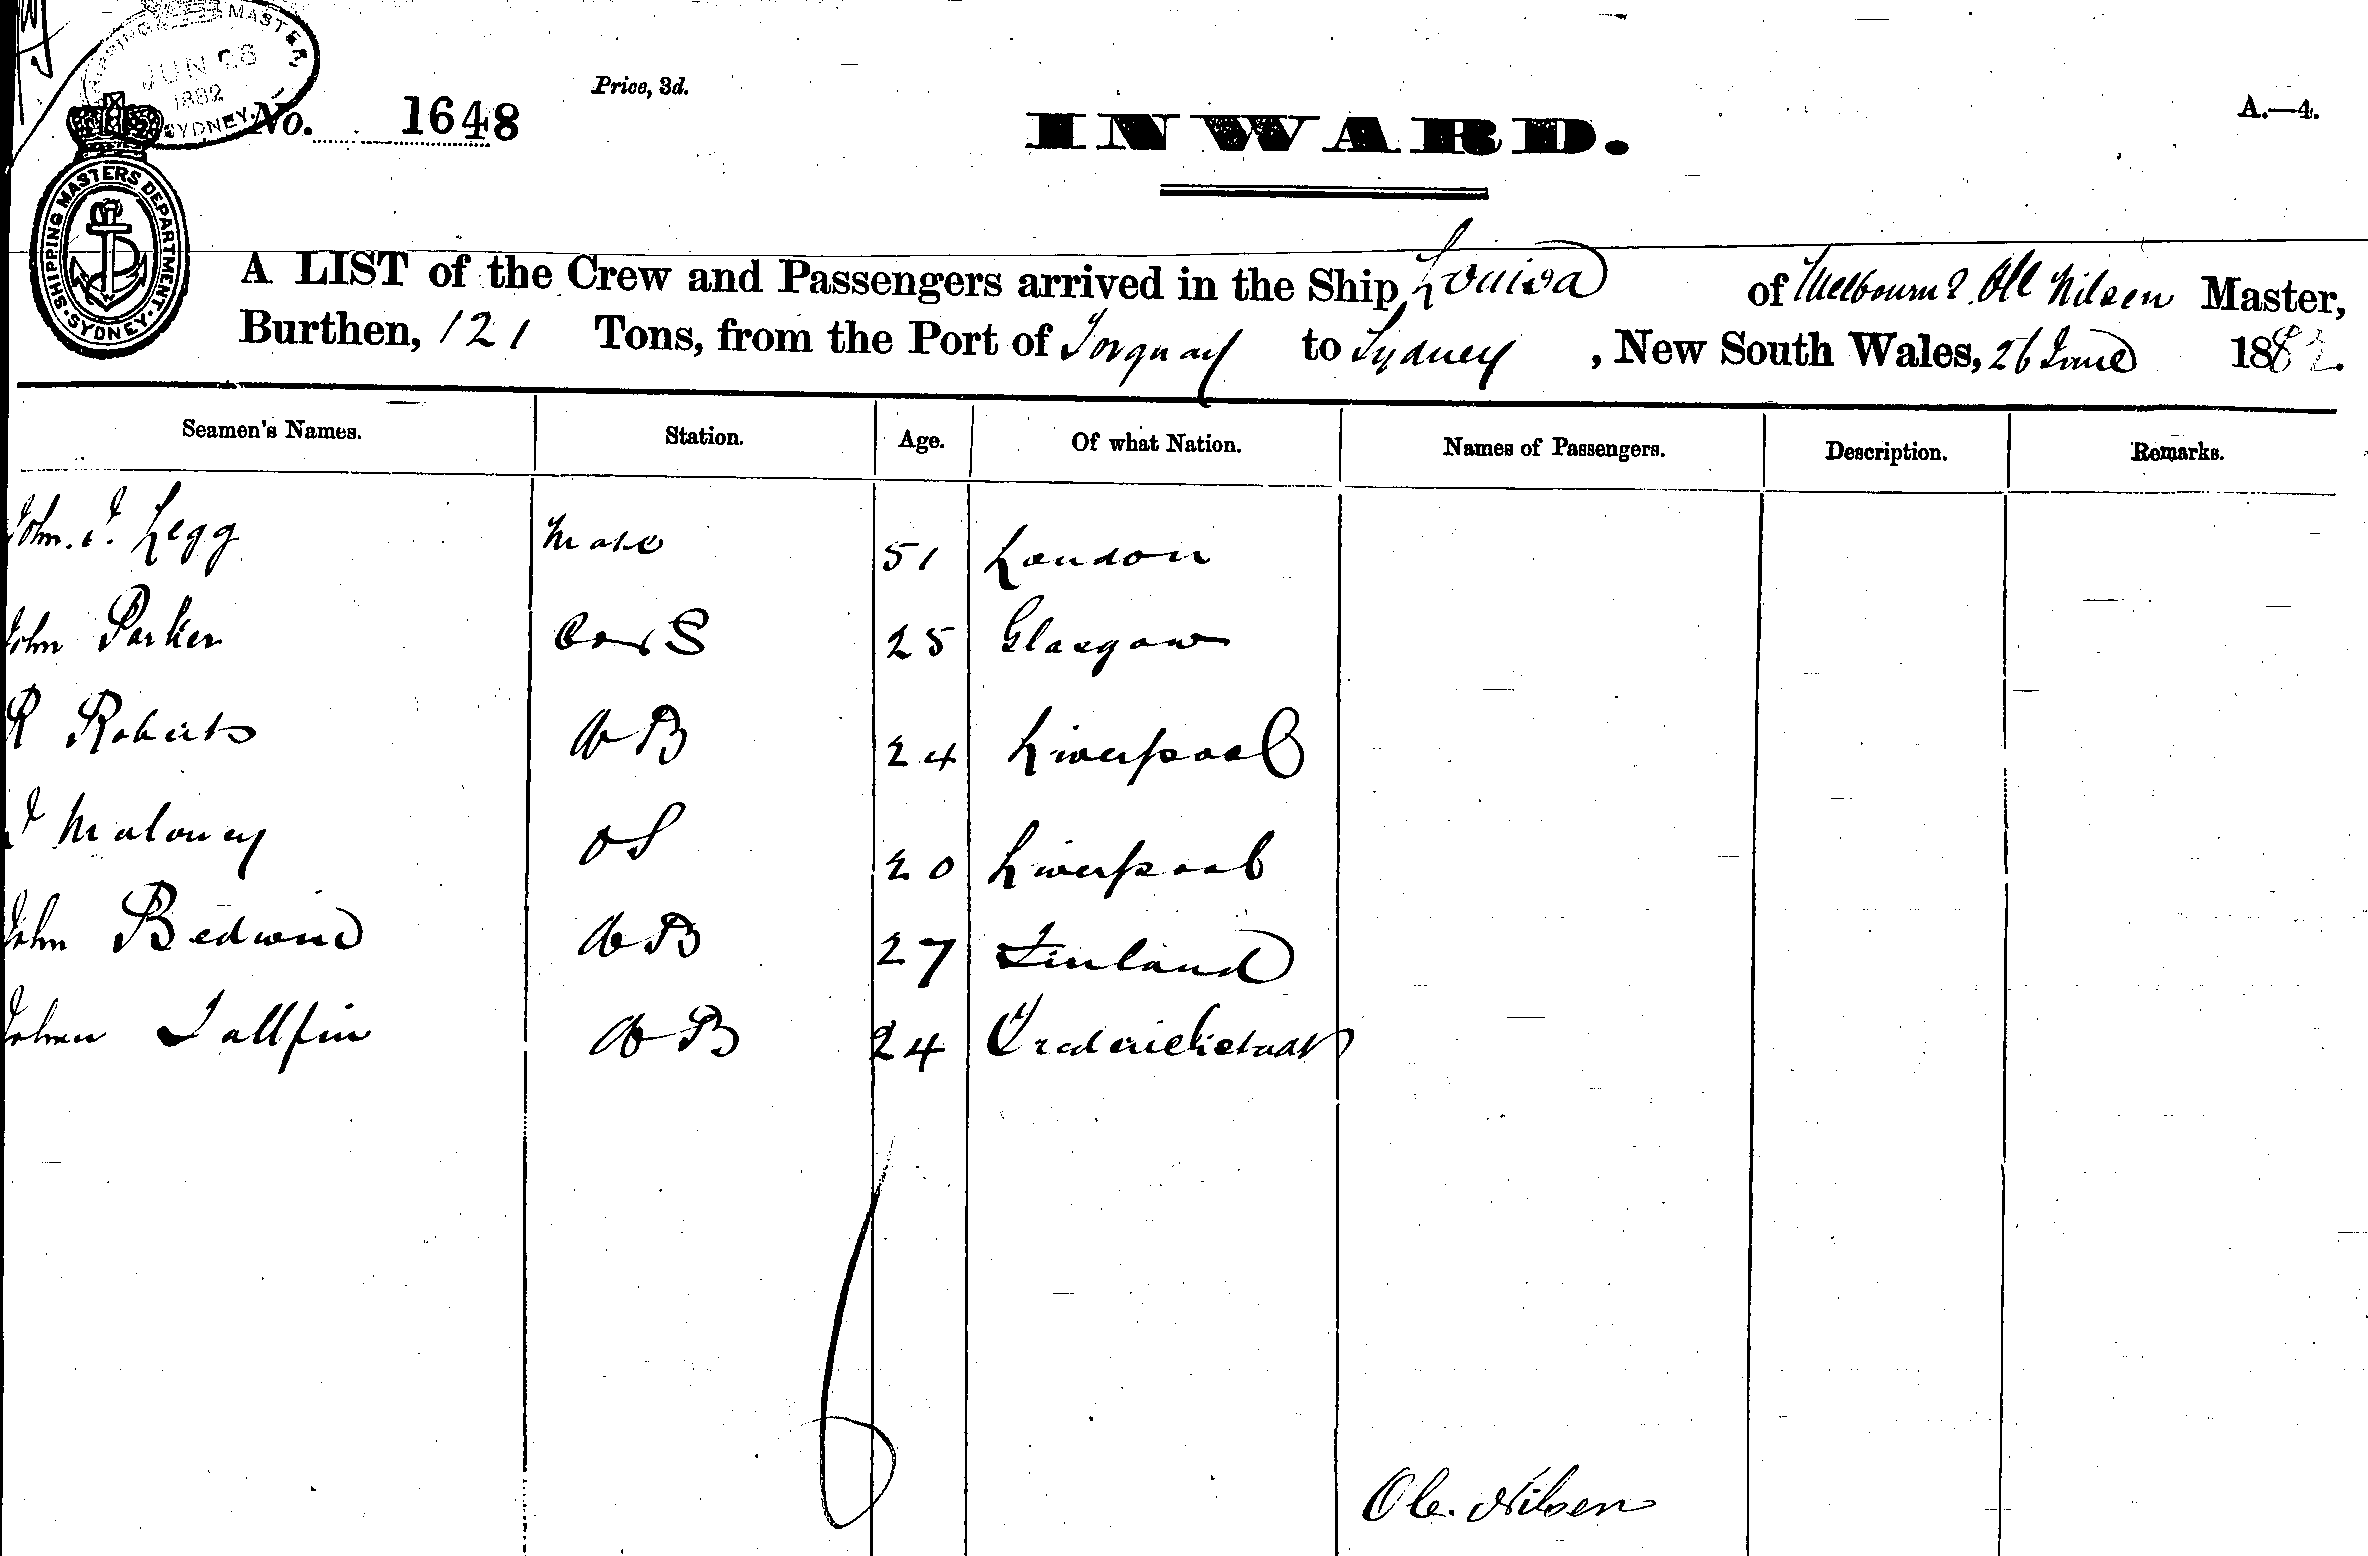 SHIPPING MASTER,
JUN 28
1882
SYDNEY.
Price, 3d.
No. 1648
INWARD.
A.—4.
SHIPPING MASTERS DEPARTMENT · SYDNEY ·
A LIST of the Crew and Passengers arrived in the Ship Louisa of Melbourne Ole Nilsen Master,
Burthen, 121 Tons, from the Port of Torquay to Sydney, New South Wales, 26 June 1882.
Seamen's Names. Station. Age. Of what Nation. Names of Passengers. Description. Remarks.
John. T. Legg Mate 51 London
John Parker C & S 25 Glasgow
R Roberts AB 24 Liverpool
J Maloney OS 20 Liverpool
John Bedwind AB 27 Finland
Johan Tallfin AB 24 Frederickstadt
6
Ole. Nilsen